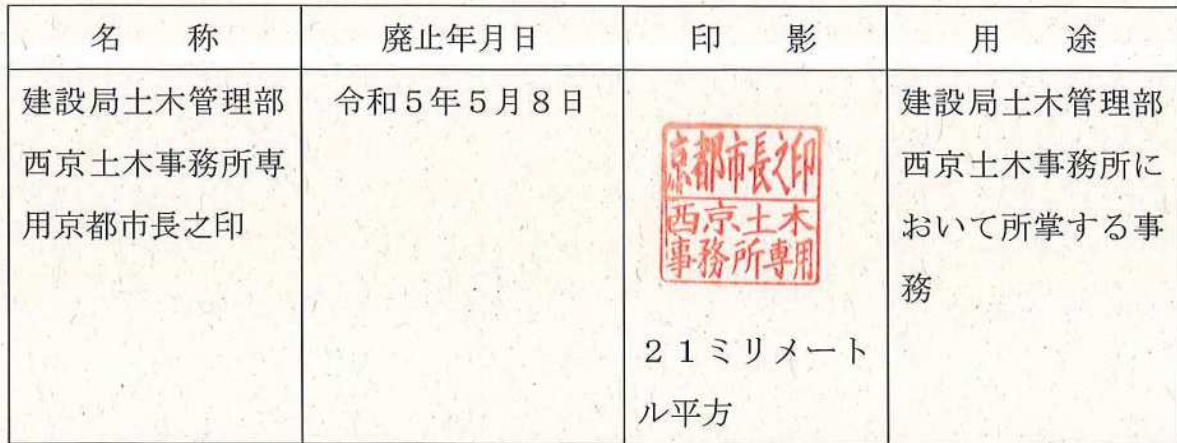 名　　称
廃止年月日
印　　影
用　　途
建設局土木管理部
西京土木事務所専
用京都市長之印
令和５年５月８日
京都市長之印
西京土木
事務所専用
２１ミリメート
ル平方
建設局土木管理部
西京土木事務所に
おいて所掌する事
務